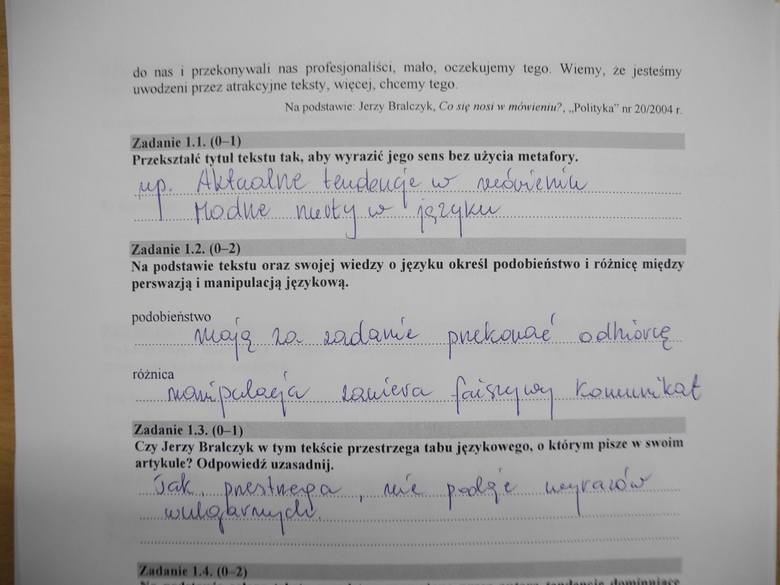 do nas i przekonywali nas profesjonaliści, mało, oczekujemy tego. Wiemy, że jesteśmy
uwodzeni przez atrakcyjne teksty, więcej, chcemy tego.
Na podstawie: Jerzy Bralczyk, Co się nosi w mówieniu?, „Polityka” nr 20/2004 r.
Zadanie 1.1. (0–1)
Przekształć tytuł tekstu tak, aby wyrazić jego sens bez użycia metafory.
np. Aktualne tendencje w mówieniu
Modne nurty w języku
Zadanie 1.2. (0–2)
Na podstawie tekstu oraz swojej wiedzy o języku określ podobieństwo i różnicę między
perswazją i manipulacją językową.
podobieństwo
mają za zadanie przekonać odbiorcę
różnica
manipulacja zawiera fałszywy komunikat
Zadanie 1.3. (0–1)
Czy Jerzy Bralczyk w tym tekście przestrzega tabu językowego, o którym pisze w swoim
artykule? Odpowiedź uzasadnij.
Tak, przestrzega, nie podaje wyrazów
wulgarnych.
Zadanie 1.4. (0–2)